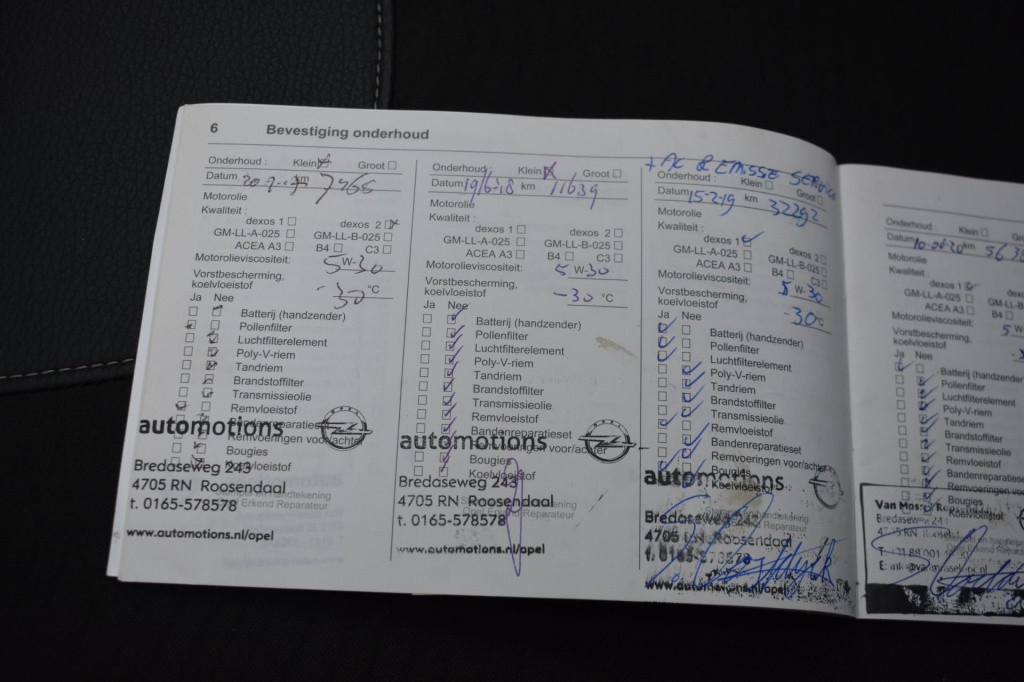 6 Bevestiging onderhoud
Onderhoud: Klein Groot
Datum km 7466
Motorolie
Kwaliteit:
dexos 1 dexos 2
GM-LL-A-025 GM-LL-B-025
ACEA A3 B4 C3
Motorolieviscositeit: 5 W-30
Vorstbescherming,
koelvloeistof -30
Ja Nee
Batterij (handzender)
Pollenfilter
Luchtfilterelement
Poly-V-riem
Tandriem
Brandstoffilter
Transmissieolie
Remvloeistof
Bandenreparatieset
Remvoeringen voor/achter
Bougies
Koelvloeistof
automotions
Bredaseweg 243
4705 RN Roosendaal
t. 0165-578578
www.automotions.nl/opel
Onderhoud: Klein Groot
Datum 19/6-18 km 11639
Motorolie
Kwaliteit:
dexos 1 dexos 2
GM-LL-A-025 GM-LL-B-025
ACEA A3 B4 C3
Motorolieviscositeit: 5 W-30
Vorstbescherming,
koelvloeistof -30 °C
Ja Nee
Batterij (handzender)
Pollenfilter
Luchtfilterelement
Poly-V-riem
Tandriem
Brandstoffilter
Transmissieolie
Remvloeistof
Bandenreparatieset
Remvoeringen voor/achter
Bougies
Koelvloeistof
automotions
Bredaseweg 243
4705 RN Roosendaal
t. 0165-578578
www.automotions.nl/opel
+ AC & EMISSE SERVICE
Onderhoud: Klein Groot
Datum 15-2-19 km 32292
Motorolie
Kwaliteit:
dexos 1 dexos 2
GM-LL-A-025 GM-LL-B-025
ACEA A3 B4 C3
Motorolieviscositeit: 5 W-30
Vorstbescherming,
koelvloeistof -30 °C
Ja Nee
Batterij (handzender)
Pollenfilter
Luchtfilterelement
Poly-V-riem
Tandriem
Brandstoffilter
Transmissieolie
Remvloeistof
Bandenreparatieset
Remvoeringen voor/achter
Bougies
Koelvloeistof
automotions
Bredaseweg 243
4705 RN Roosendaal
t. 0165-578578
www.automotions.nl/opel
Onderhoud Klein
Datum km
Motorolie
Kwaliteit
dexos 1
GM-LL-A-025
ACEA A3
Motorolieviscositeit: 5 W
Vorstbescherming,
koelvloeistof
Ja Nee
Batterij (handzender
Pollenfilter
Luchtfilterelement
Poly-V-riem
Tandriem
Brandstoffilter
Transmissieolie
Remvloeistof
Bandenreparatieset
Remvoeringen
Bougies
Koelvloeistof
Van Mossel
Bredaseweg